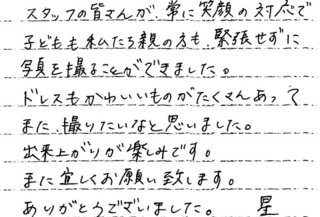 スタッフの皆さんが、常に笑顔の対応で
子どもも私たち親の方も、緊張せずに
写真を撮ることができました。
ドレスもかわいいものがたくさんあって
また、撮りたいなと思いました。
出来上がりが楽しみです。
また宜しくお願い致します。
ありがとうございました。 星